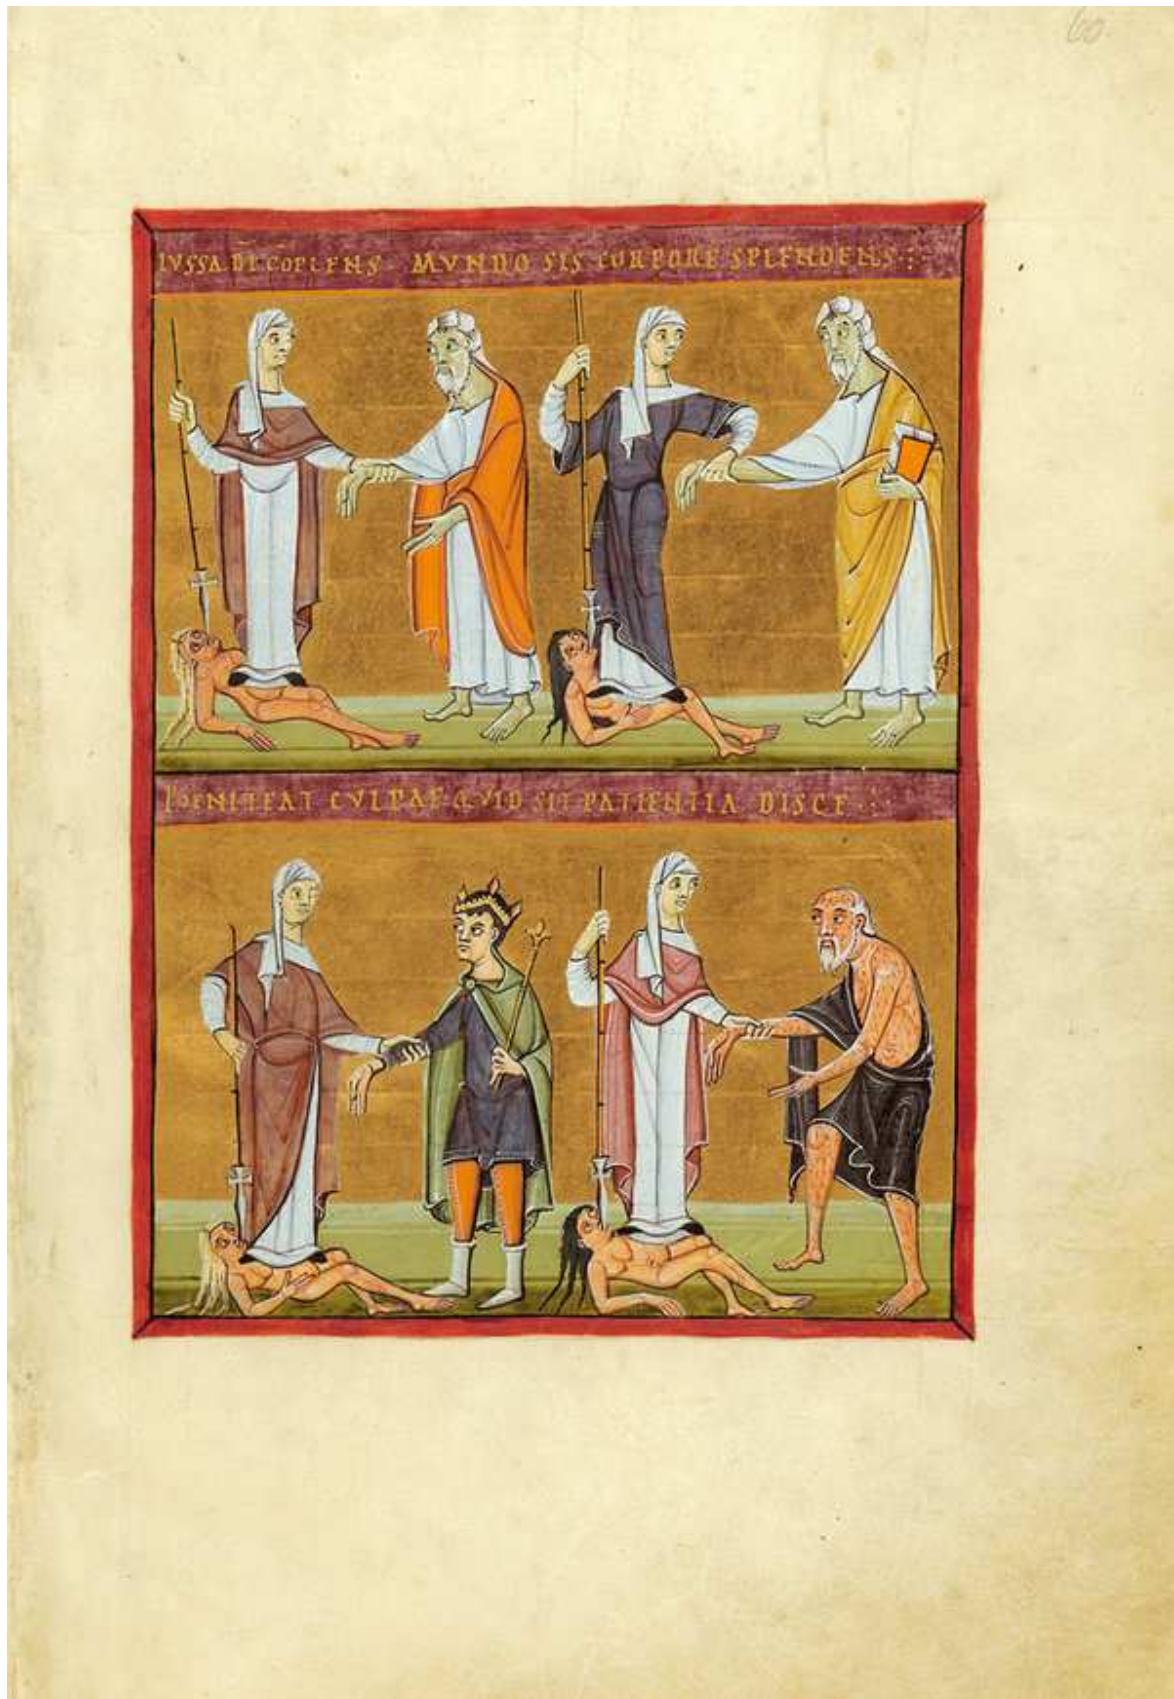 60.
IVSSA D̄I C̄OPLENS · MVNDO SIS CORPORE SPLENDENS :·
POENITEAT CVLPAE QVID SIT PATIENTIA DISCE ·:·